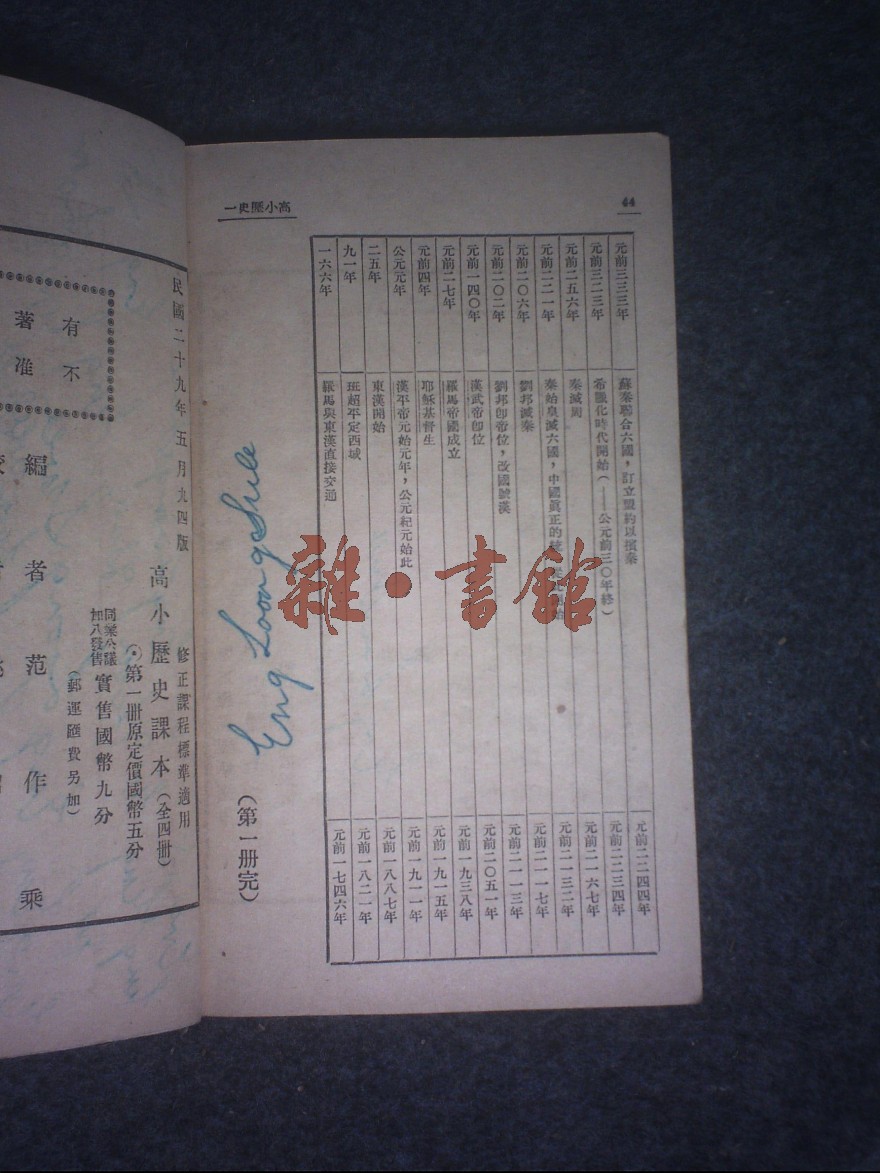 44
高小歷史一
元前三三三年 蘇秦聯合六國，訂立盟約以擯秦 元前二二四四年
元前三二三年 希臘化時代開始(——公元前三〇年終) 元前二二三四年
元前二五六年 秦滅周 元前二一六七年
元前二二一年 秦始皇滅六國，中國眞正的統 元前二一三二年
元前二〇六年 劉邦滅秦 元前二一一七年
元前二〇二年 劉邦卽帝位，改國號漢 元前二一一三年
元前一四〇年 漢武帝卽位 元前二〇五一年
元前二七年 羅馬帝國成立 元前一九三八年
元前四年 耶穌基督生 元前一九一五年
公元元年 漢平帝元始元年，公元紀元始此 元前一九一一年
二五年 東漢開始 元前一八八七年
九一年 班超平定西域 元前一八二一年
一六六年 羅馬與東漢直接交通 元前一七四六年
(第一册完)
Eng Loong Swee
雜·書館
民國二十九年五月九四版
修正課程標準適用
高小歷史課本(全四册)
第一册原定價國幣五分
同業公議
加八發售
實售國幣九分
(郵運匯費另加)
有
不
著
准
編者 范作乘